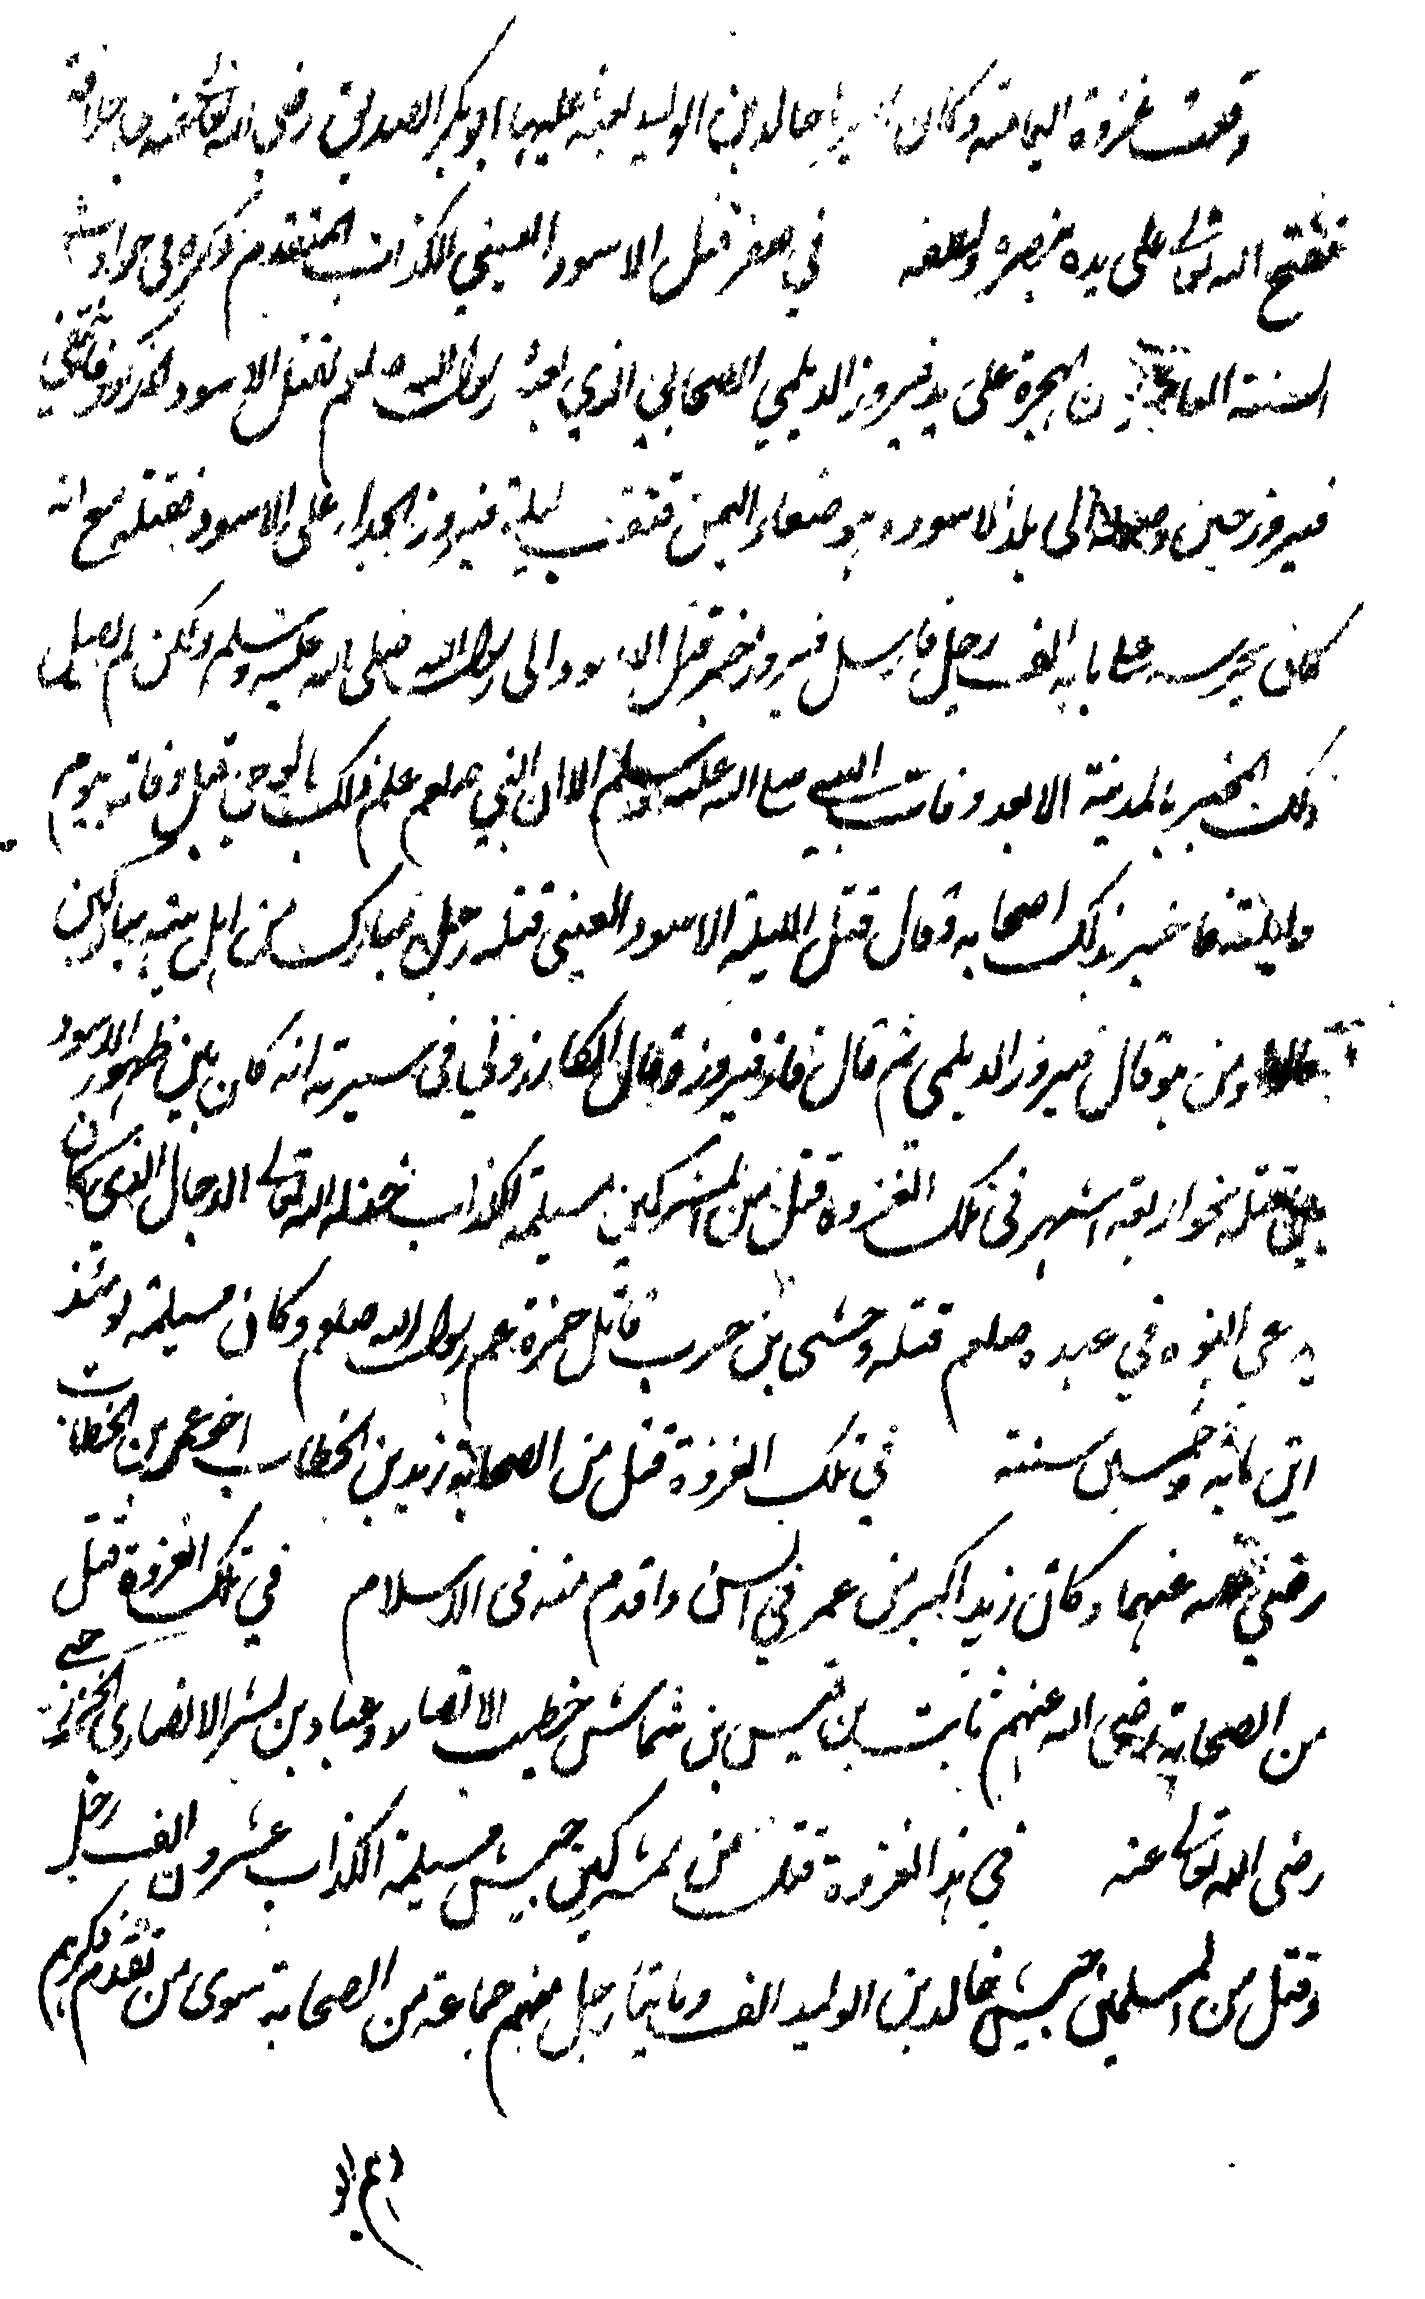 وقعت غزوة اليمامة وكان اميرها خالد بن الوليد بعثه عليها ابو بكر الصديق رضي الله تعالى عنه في خلافته
ففتح الله تعالى على يده بنصره ولطفه في صفر قتل الاسود العنسي الكذاب المتقدم ذكره في حوادث
السنة العاشرة من الهجرة على يد فيروز الديلمي الصحابي الذي بعثه رسول الله صلعم لقتل الاسود المذكور فاتفق
فيروز حين وصوله الى بلد الاسود وهو صنعاء اليمن فنقب ليلة فيروز الجدار على الاسود فقتله مع انه
كان يحرسه على بابه الف رجل فارسل فيروز خبر قتل الاسود الى رسول الله صلى الله عليه وسلم ولكن لم يصل
ذلك الخبر بالمدينة الا بعد وفات النبي صلى الله عليه وسلم الا ان النبي صلعم علم ذلك بالوحي قبل وفاته بيوم
وليلة فاخبر بذلك اصحابه وقال قتل الليلة الاسود العنسي قتله رجل مبارك من اهل بيت مباركين
قالوا ومن هو قال فيروز الديلمي ثم قال فاز فيروز وقال الكازروني في سيرته انه كان بين ظهور الاسود
وبين قتله نحو اربعة اشهر في تلك الغزوة قتل من المشركين مسيلمة الكذاب خذله الله تعالى الدجال الذي كان
يدعي النبوه في عهده صلعم قتله وحشي بن حرب قاتل حمزة عم رسول الله صلعم وكان مسيلمة يومئذ
ابن مائة وخمسين سنة في تلك الغزوة قتل من الصحابة زيد بن الخطاب اخو عمر بن الخطاب
رضي الله عنهما وكان زيد اكبر من عمر في السن واقدم منه في الاسلام في تلك الغزوة قتل
من الصحابة رضي الله عنهم ثابت بن قيس بن شماس خطيب الانصار وعباد بن بشر الانصاري الخزرجي
رضى الله تعالى عنه في هذ الغزوة قتل من المشركين جيش مسيلمة الكذاب عشرون الف رجل
وقتل من المسلمين جيش خالد بن الوليد الف ومايتا رجل منهم جماعة من الصحابة سوى من تقدم ذكرهم